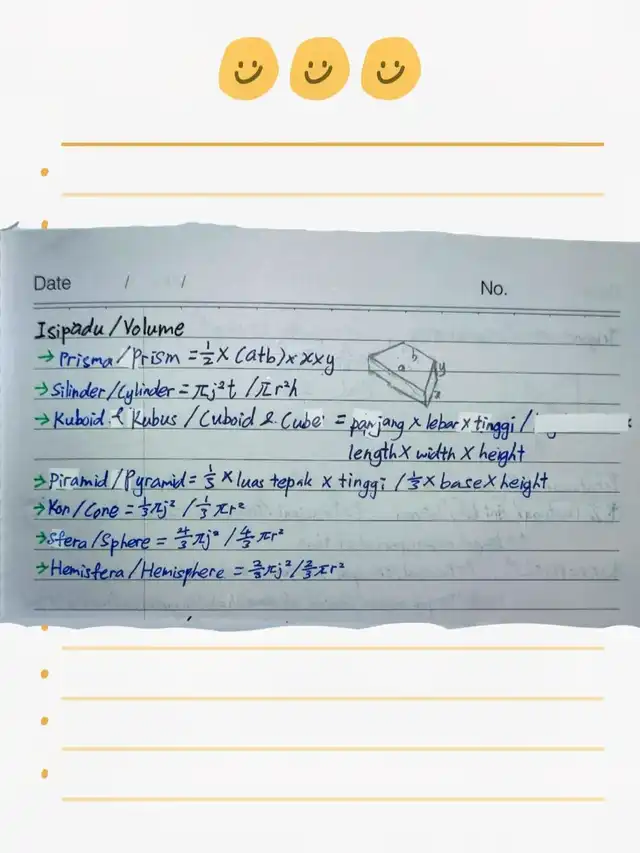 Date / /
No.
Isipadu/Volume
→ Prisma/Prism = ½ × (a+b) × x × y
b
a
y
x
→ Silinder/Cylinder = πj²t / πr²h
→ Kuboid & Kubus / Cuboid & Cube = panjang × lebar × tinggi /
length × width × height
→ Piramid/Pyramid = ⅓ × luas tapak × tinggi / ⅓ × base × height
→ Kon/Cone = ⅓πj² / ⅓πr²
→ Sfera/Sphere = 4/3 πj² / 4/3 πr²
→ Hemisfera/Hemisphere = ⅔πj² / ⅔πr²